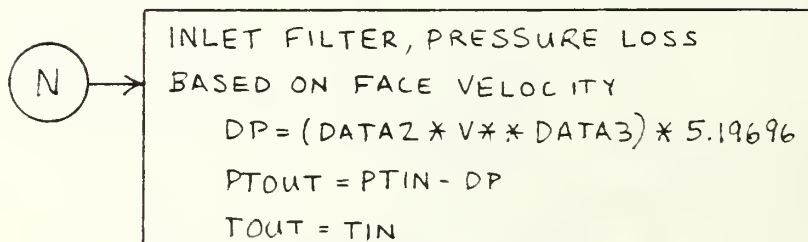 N
INLET FILTER, PRESSURE LOSS
BASED ON FACE VELOCITY
DP = (DATA2 * V ** DATA3) * 5.19696
PTOUT = PTIN - DP
TOUT = TIN